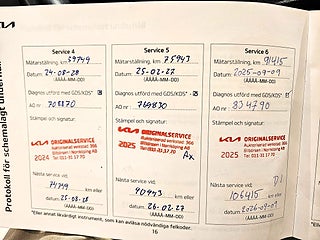 KIA
Protokoll för schemalagt underhåll
Service 4
Mätarställning. 59749
Datum 24-08-28
(ÅÅÅÅ-MM-DD)
Diagnos utförd med GDS/KDS*
AO nr: 708170
Stämpel och signatur:
KIA ORIGINALSERVICE
Auktoriserad verkstad: 366
Bilbörsen i Norrköping AB
2024 Tel: 011-31 17 70
Nästa service vid:
74749 km eller
datum 25-08-28
(ÅÅÅÅ-MM-DD)
Service 5
Mätarställning. 75943
Datum. 25-02-27
(ÅÅÅÅ-MM-DD)
Diagnos utförd med GDS/KDS*
AO nr: 769830
Stämpel och signatur:
KIA ORIGINALSERVICE
Auktoriserad verkstad: 366
Bilbörsen i Norrköping AB
2025 Tel: 011-31 17 70
Nästa service vid:
90943 km eller
datum 26-02-27
(ÅÅÅÅ-MM-DD)
Service 6
Mätarställning. 91415
Datum. 2025-09-09
(ÅÅÅÅ-MM-DD)
Diagnos utförd med GDS/KDS*
AO nr: 834790
Stämpel och signatur:
KIA ORIGINALSERVICE
Auktoriserad verkstad: 366
Bilbörsen i Norrköping AB
2025 Tel: 011-31 17 70
Nästa service vid:
106415 km eller
datum 2026-09-09
(ÅÅÅÅ-MM-DD)
*Eller annat likvärdigt instrument, som kan avläsa nödvändiga felkoder.
16